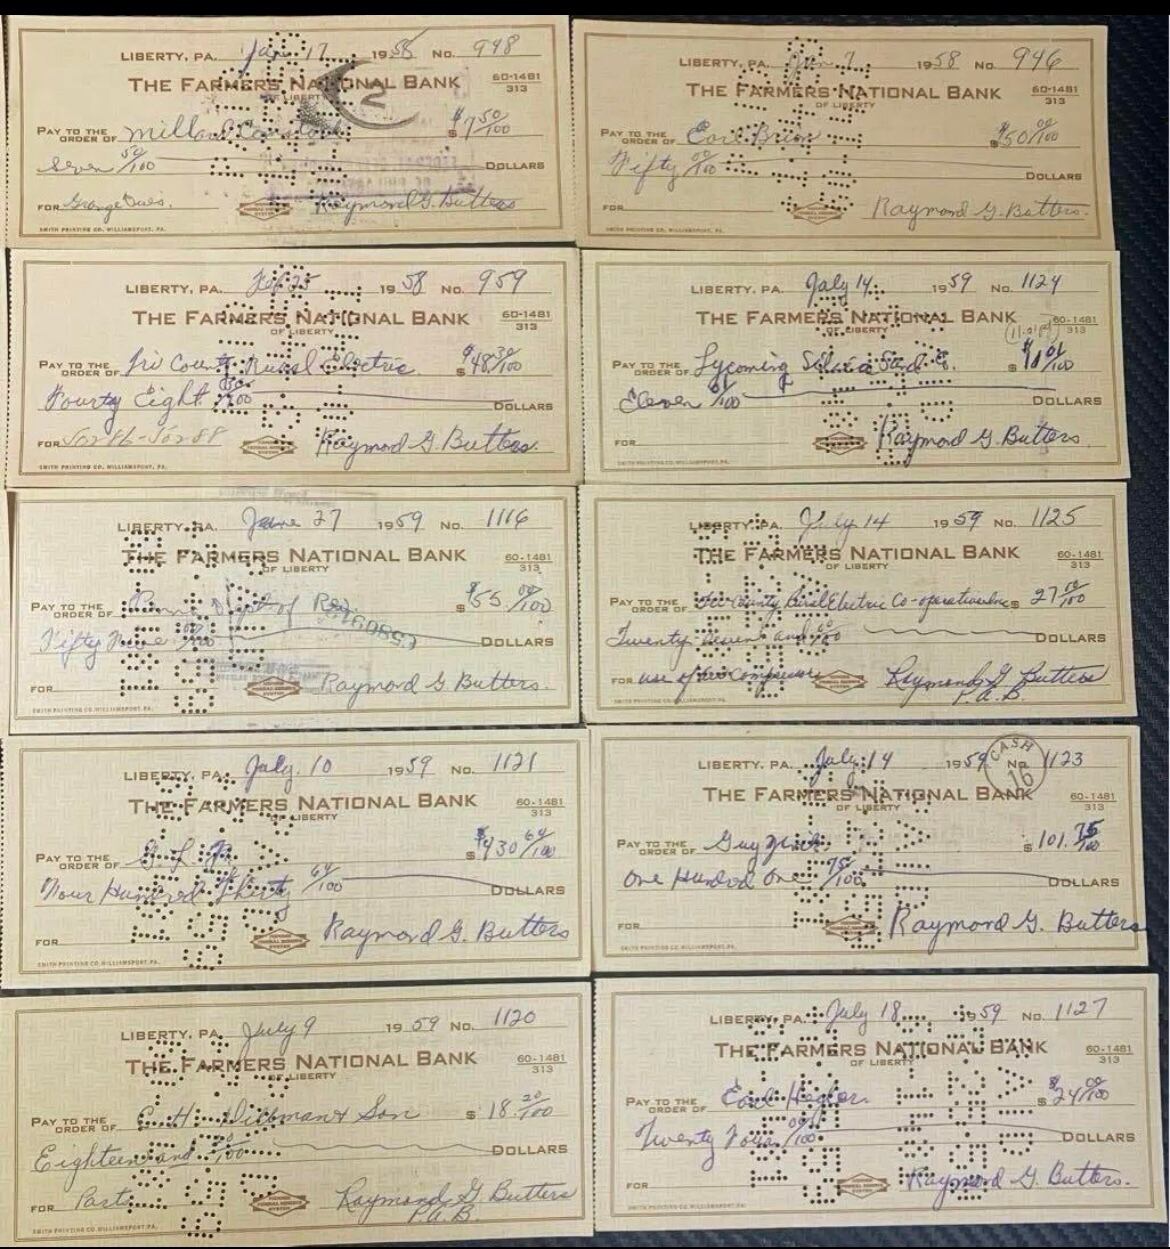 LIBERTY, PA. Jan 17 1958 No. 948
THE FARMERS NATIONAL BANK 60-1481
OF LIBERTY 313
PAY TO THE
ORDER OF Millard $7 50/100
Seven 50/100 DOLLARS
FOR Grange Dues. Raymond G. Butters
SMITH PRINTING CO. WILLIAMSPORT, PA.
LIBERTY, PA. Jan 7 1958 No. 946
THE FARMERS NATIONAL BANK 60-1481
OF LIBERTY 313
PAY TO THE
ORDER OF Earl Brion $50 00/100
Fifty 00/100 DOLLARS
FOR Raymond G. Butters.
SMITH PRINTING CO. WILLIAMSPORT, PA.
LIBERTY, PA. Feb 25 1958 No. 959
THE FARMERS NATIONAL BANK 60-1481
OF LIBERTY 313
PAY TO THE
ORDER OF Tri County Rural Electric $48 30/100
Fourty Eight 30/100 DOLLARS
FOR Raymond G. Butters.
SMITH PRINTING CO. WILLIAMSPORT, PA.
LIBERTY, PA. July 14 1959 No. 1124
THE FARMERS NATIONAL BANK 60-1481
OF LIBERTY 313
PAY TO THE
ORDER OF Lycoming Silica Sand $11 01/100
Eleven 01/100 DOLLARS
FOR Raymond G. Butters
SMITH PRINTING CO. WILLIAMSPORT, PA.
LIBERTY, PA. June 27 1959 No. 1116
THE FARMERS NATIONAL BANK 60-1481
OF LIBERTY 313
PAY TO THE
ORDER OF Penna Dept of Rev. $55 00/100
Fifty Five 00/100 DOLLARS
FOR Raymond G Butters.
SMITH PRINTING CO. WILLIAMSPORT, PA.
LIBERTY, PA. July 14 1959 No. 1125
THE FARMERS NATIONAL BANK 60-1481
OF LIBERTY 313
PAY TO THE
ORDER OF Tri County Rural Electric Co-operative Inc $ 27 00/100
Twenty Seven and 00/100 DOLLARS
FOR use of Compressor Raymond G Butters
P.A.B.
SMITH PRINTING CO. WILLIAMSPORT, PA.
LIBERTY, PA. July. 10 1959 No. 1121
THE FARMERS NATIONAL BANK 60-1481
OF LIBERTY 313
PAY TO THE
ORDER OF G. L. F. $430 64/100
Four Hundred Thirty 64/100 DOLLARS
FOR Raymond G. Butters
SMITH PRINTING CO. WILLIAMSPORT, PA.
LIBERTY, PA. July 14 1959 No. 1123
CASH
16
THE FARMERS NATIONAL BANK 60-1481
OF LIBERTY 313
PAY TO THE
ORDER OF Guy $ 101. 75/100
One Hundred One 75/100 DOLLARS
FOR Raymond G. Butters
SMITH PRINTING CO. WILLIAMSPORT, PA.
LIBERTY, PA. July 9 1959 No. 1120
THE FARMERS NATIONAL BANK 60-1481
OF LIBERTY 313
PAY TO THE
ORDER OF C. H. & Son $ 18. 20/100
Eighteen and 20/100 DOLLARS
FOR Parts Raymond G Butters
P.A.B.
SMITH PRINTING CO. WILLIAMSPORT, PA.
LIBERTY, PA. July 18 1959 No. 1127
THE FARMERS NATIONAL BANK 60-1481
OF LIBERTY 313
PAY TO THE
ORDER OF Earl $24 00/100
Twenty Four 00/100 DOLLARS
FOR Raymond G. Butters.
SMITH PRINTING CO. WILLIAMSPORT, PA.